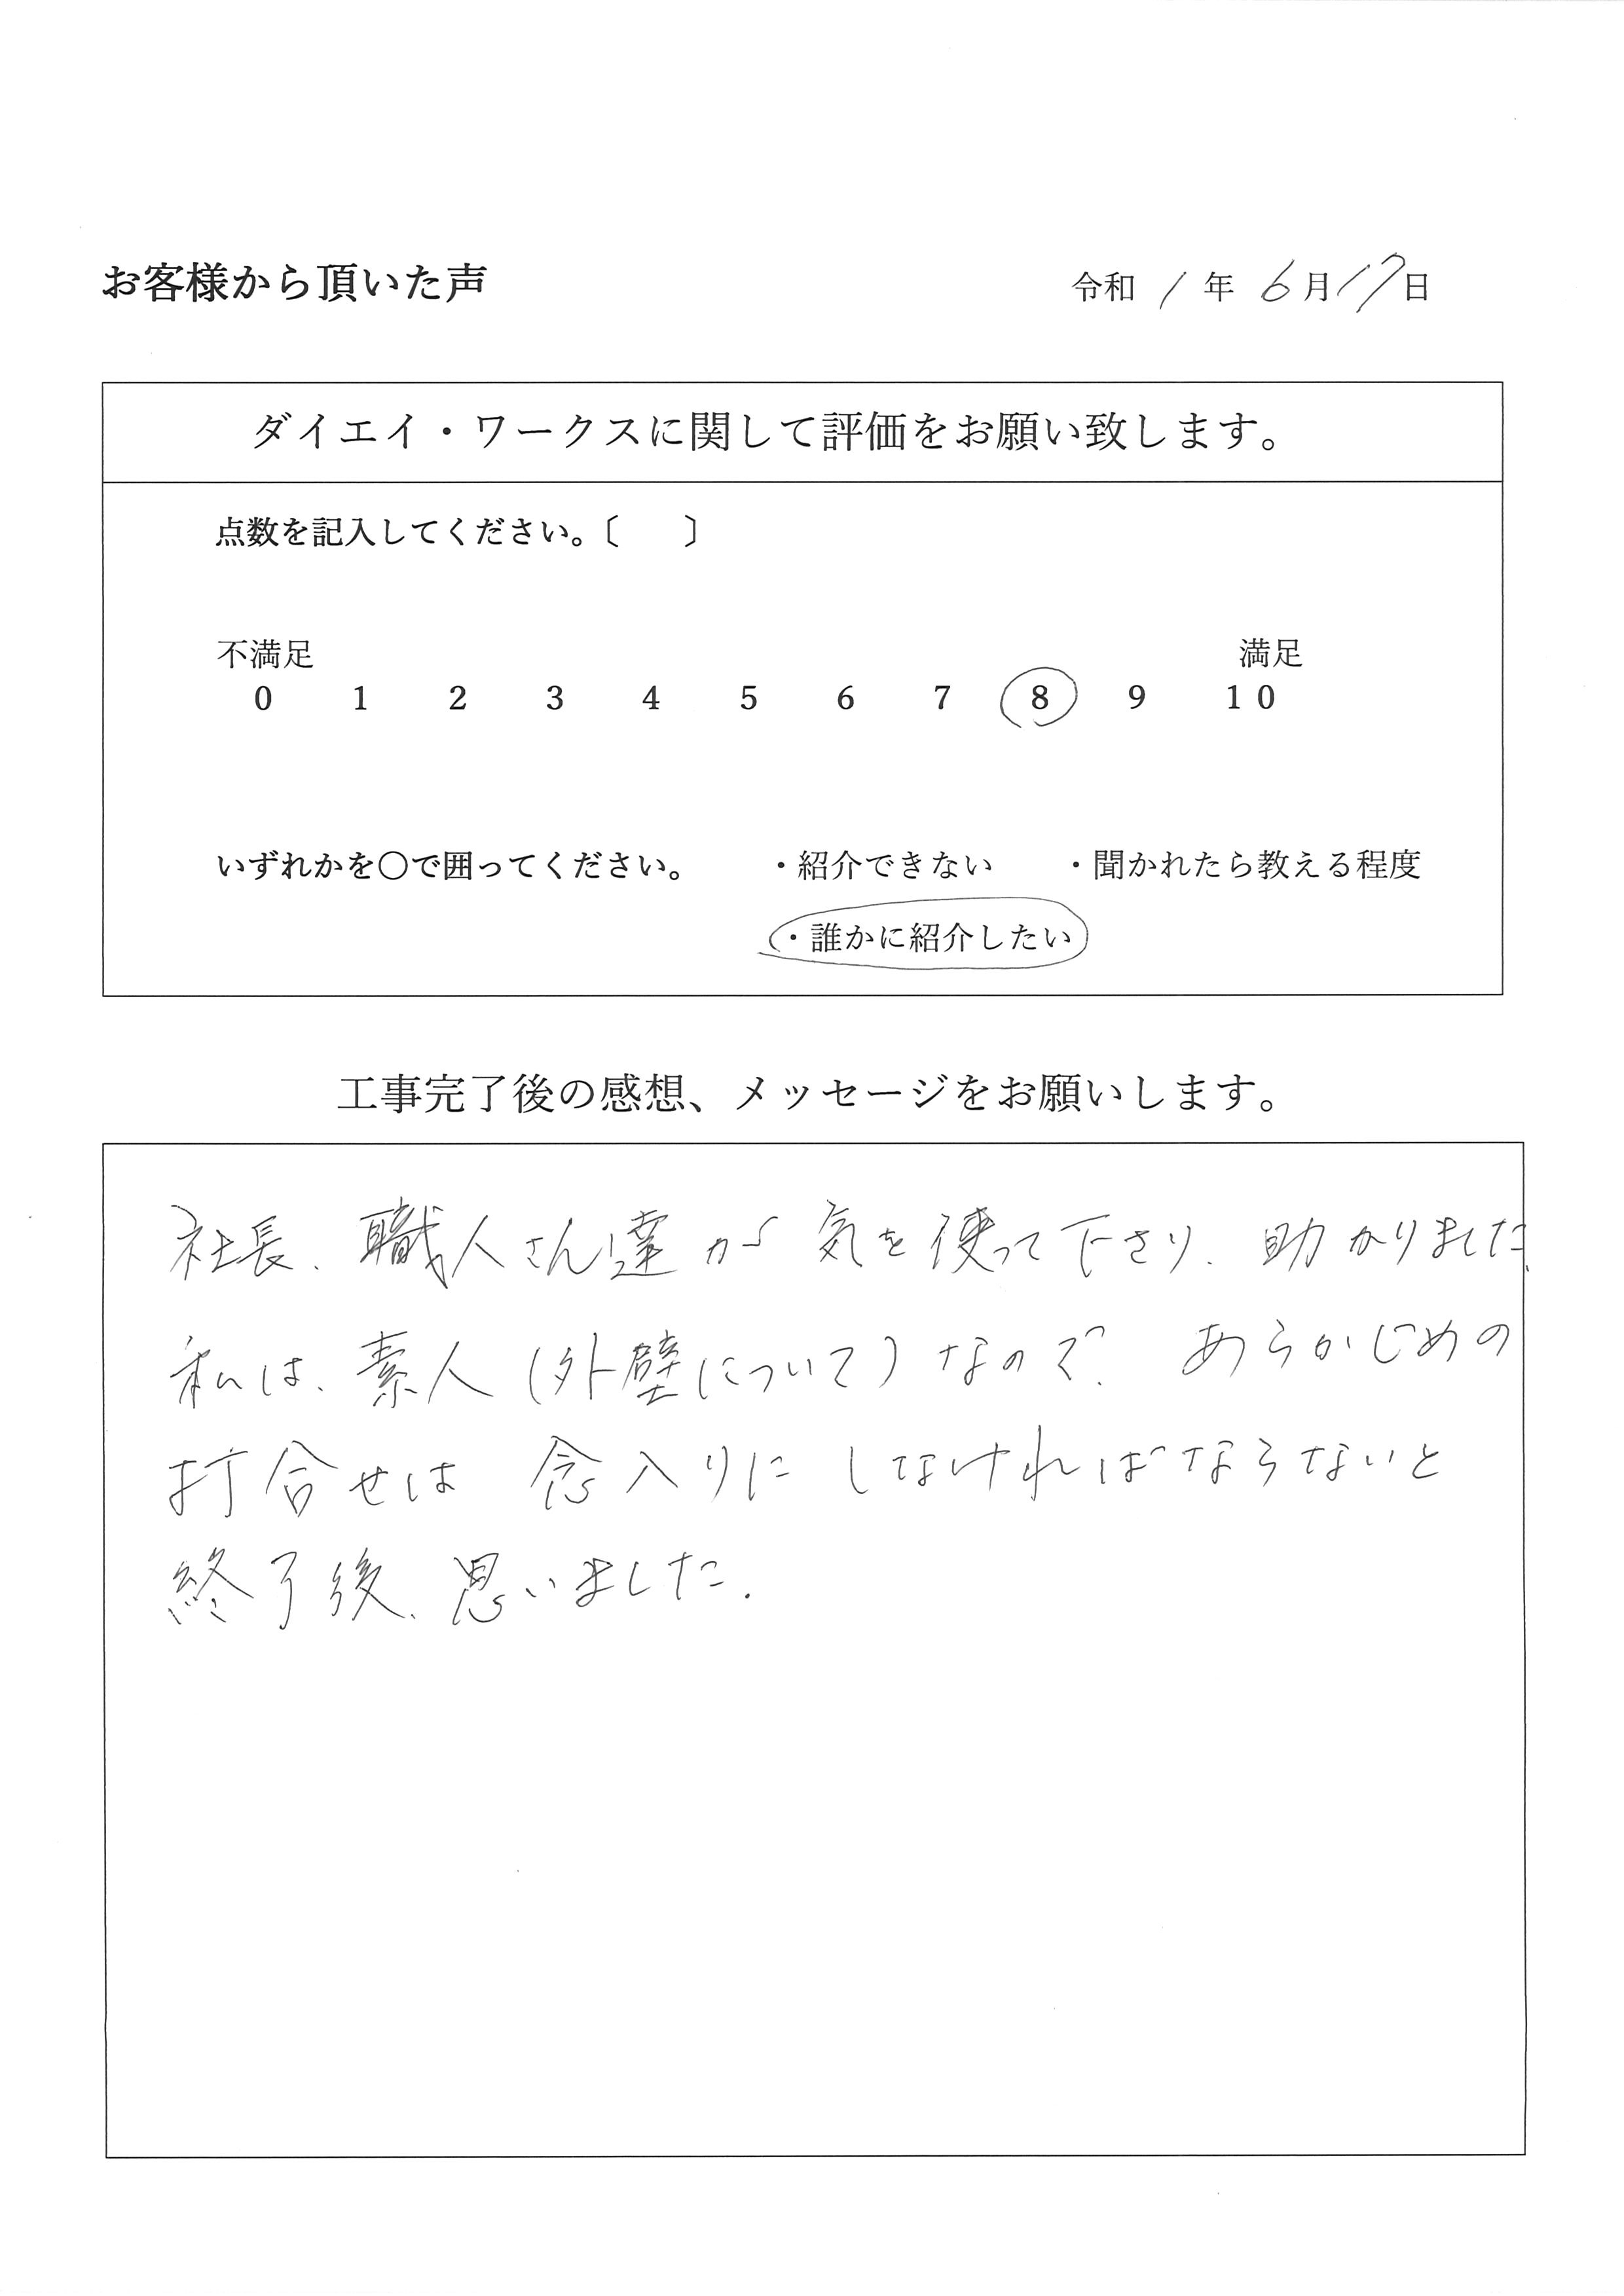 お客様から頂いた声
令和 1 年 6 月 17 日
ダイエイ・ワークスに関して評価をお願い致します。
点数を記入してください。〔　〕
不満足 満足
0 1 2 3 4 5 6 7 8 9 10
いずれかを〇で囲ってください。 ・紹介できない ・聞かれたら教える程度
・誰かに紹介したい
工事完了後の感想、メッセージをお願いします。
社長、職人さん達が気を使って下さり、助かりました、
私は、素人(外壁について)なので、あらかじめの
打合せは 念入りに しなければならないと
終了後、思いました.